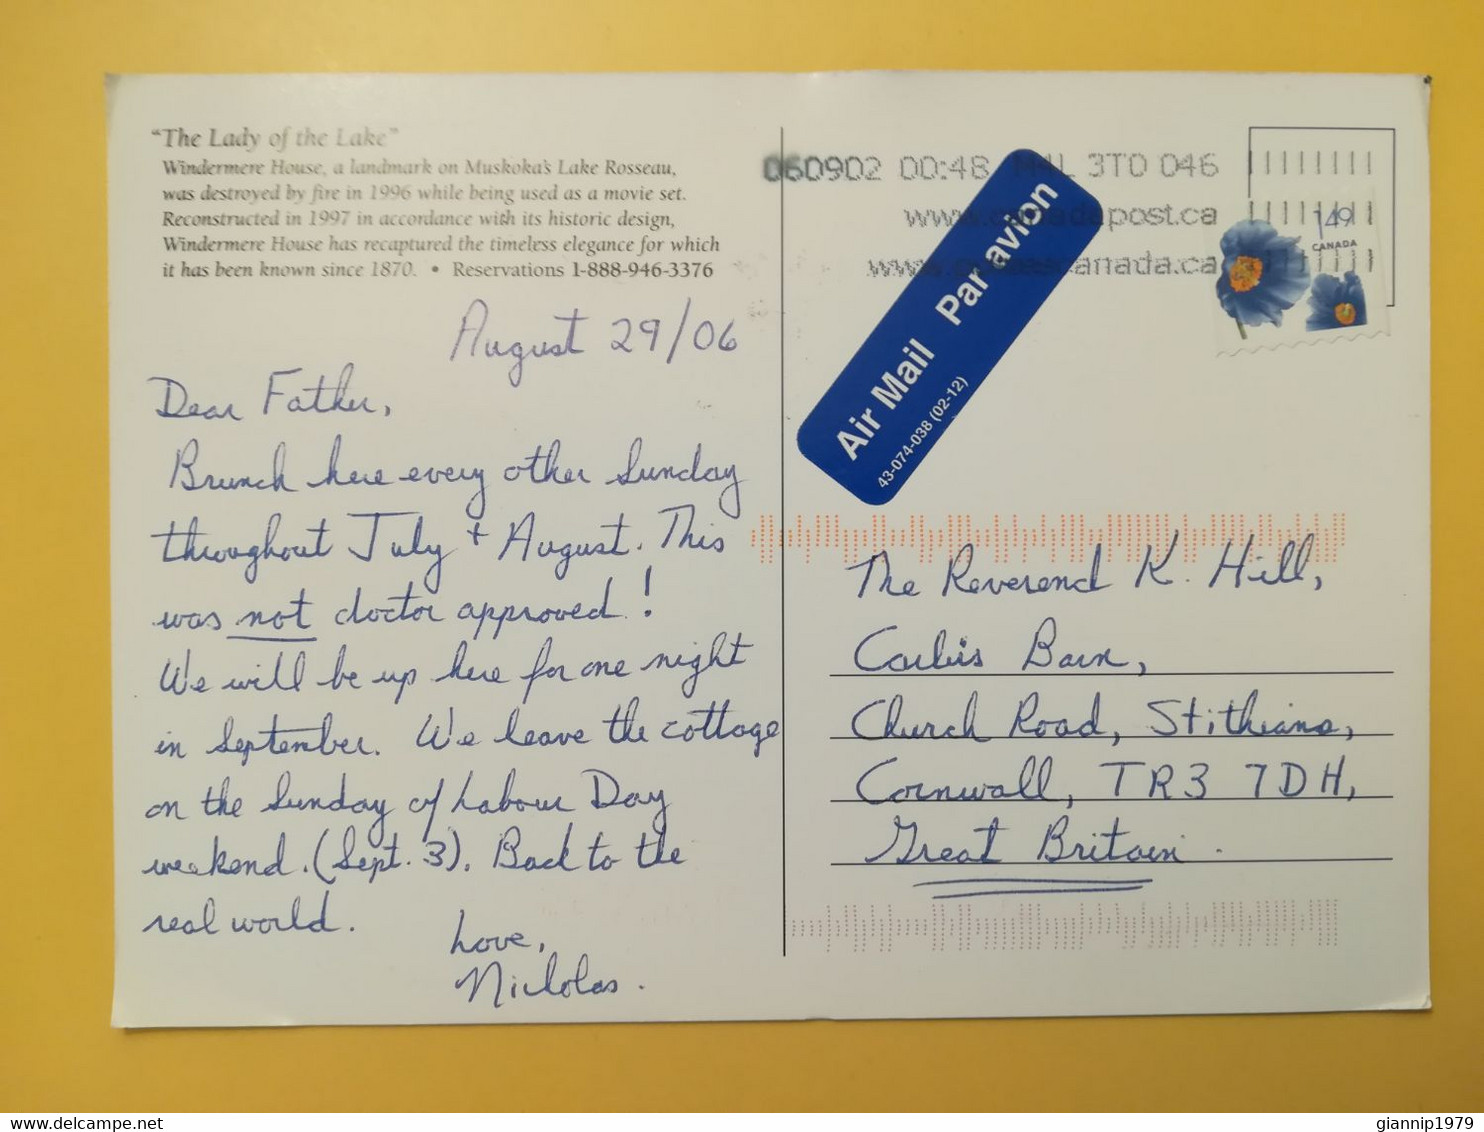 "The Lady of the Lake"
Windermere House, a landmark on Muskoka's Lake Rosseau,
was destroyed by fire in 1996 while being used as a movie set.
Reconstructed in 1997 in accordance with its historic design,
Windermere House has recaptured the timeless elegance for which
it has been known since 1870. • Reservations 1-888-946-3376
August 29/06
Dear Father,
Brunch here every other Sunday
throughout July + August. This
was not doctor approved!
We will be up here for one night
in September. We leave the cottage
on the Sunday of Labour Day
weekend. (Sept. 3). Back to the
real world.
Love,
Nicholas.
060902 00:48 M4L 3T0 046
www.canadapost.ca
www.postescanada.ca
149
CANADA
Air Mail Par avion
43-074-038 (02-12)
The Reverend K. Hill,
Barn,
Church Road, Stithians,
Cornwall, TR3 7DH,
Great Britain.
giannip1979